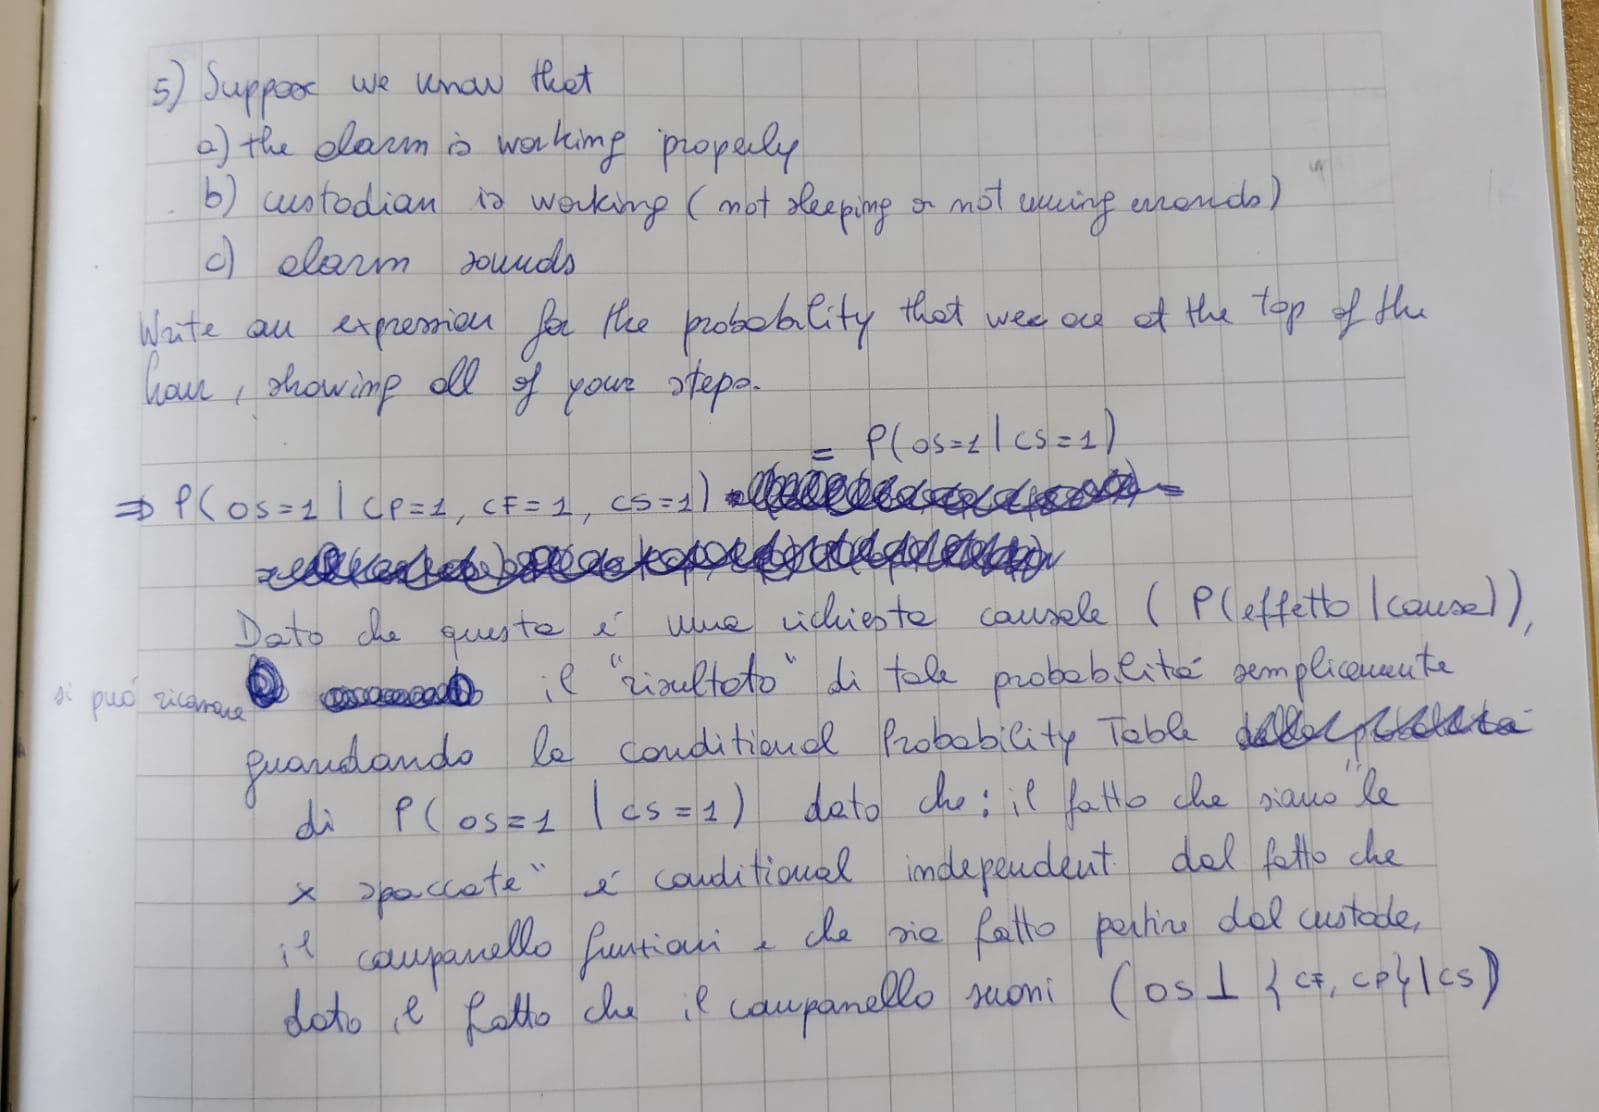 5) Suppose we know that
a) the alarm is working properly
b) custodian is working ( not sleeping or not running errands)
c) alarm sounds
Write an expression for the probability that wee are at the top of the
hour, showing all of your steps.
= P(OS=1 | CS=1)
⇒ P( OS=1 | CP=1, CF=1, CS=1)
Dato che questa é una richiesta causale ( P(effetto | causa)),
si può ricavare il "risultato" di tale probabilità semplicemente
guardando la conditional Probability Table
di P( OS=1 | CS=1) dato che: il fatto che siano "le
x spaccate" é conditional independent dal fatto che
il campanello funzioni e che sia fatto partire dal custode,
dato il fatto che il campanello suoni (OS ⊥ { CF, CP} | CS)